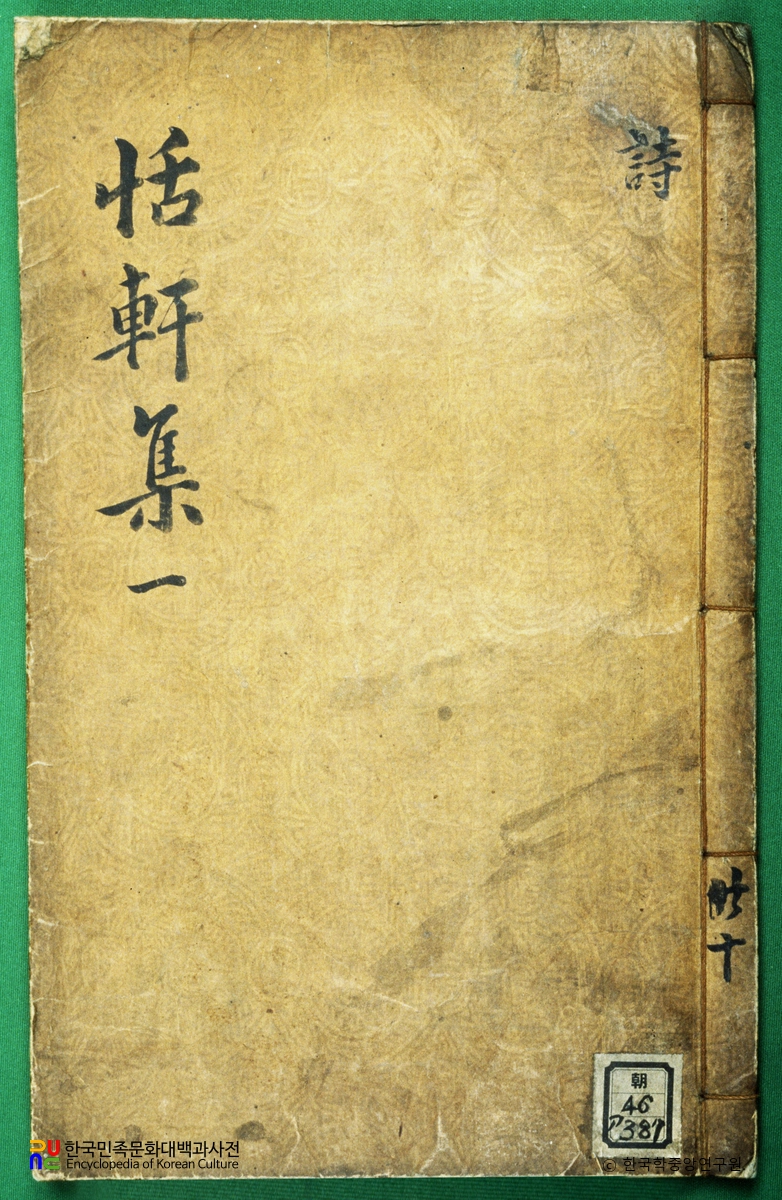 詩
恬軒集 一
共十
朝
46
ア387
한국민족문화대백과사전
Encyclopedia of Korean Culture
© 한국학중앙연구원